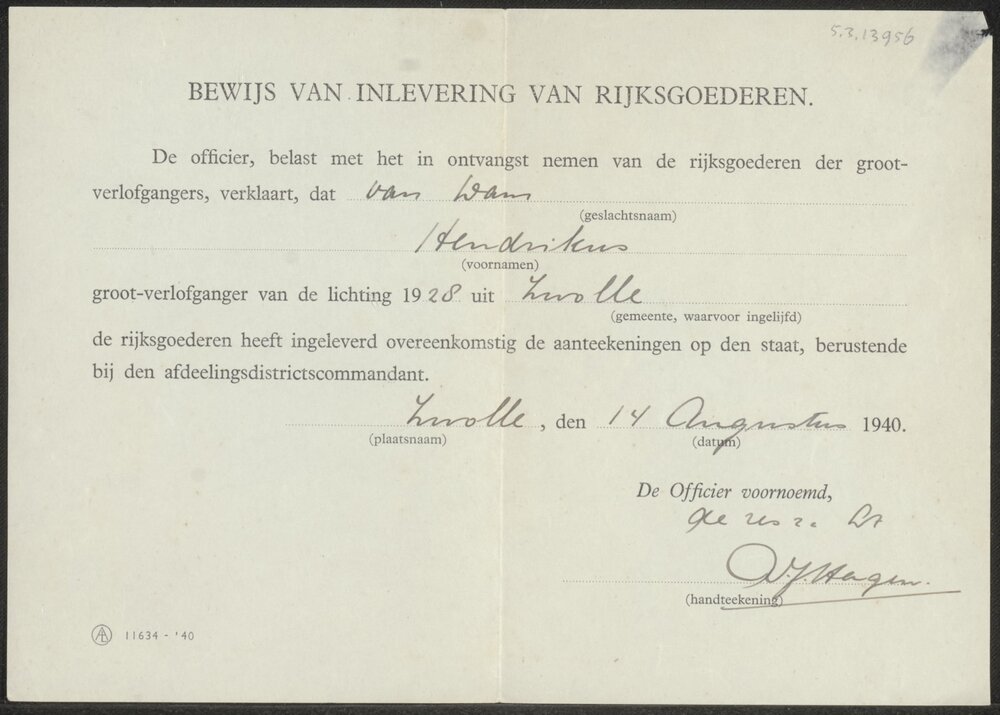 5.3.13956
BEWIJS VAN INLEVERING VAN RIJKSGOEDEREN.
De officier, belast met het in ontvangst nemen van de rijksgoederen der groot-
verlofgangers, verklaart, dat van Dam
(geslachtsnaam)
Hendrikus
(voornamen)
groot-verlofganger van de lichting 1928 uit Zwolle
(gemeente, waarvoor ingelijfd)
de rijksgoederen heeft ingeleverd overeenkomstig de aanteekeningen op den staat, berustende
bij den afdeelingsdistrictscommandant.
Zwolle, den 14 Augustus 1940.
(plaatsnaam) (datum)
De Officier voornoemd,
de res
Hagen.
(handteekening)
11634 - '40